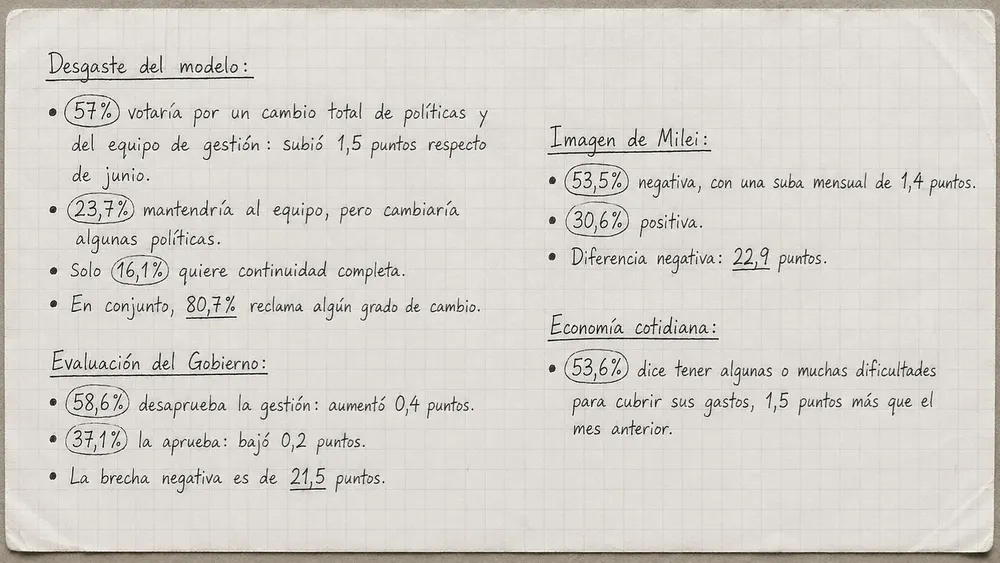 Desgaste del modelo:
• 57% votaría por un cambio total de políticas y
del equipo de gestión: subió 1,5 puntos respecto
de junio.
• 23,7% mantendría al equipo, pero cambiaría
algunas políticas.
• Solo 16,1% quiere continuidad completa.
• En conjunto, 80,7% reclama algún grado de cambio.
Evaluación del Gobierno:
• 58,6% desaprueba la gestión: aumentó 0,4 puntos.
• 37,1% la aprueba: bajó 0,2 puntos.
• La brecha negativa es de 21,5 puntos.
Imagen de Milei:
• 53,5% negativa, con una suba mensual de 1,4 puntos.
• 30,6% positiva.
• Diferencia negativa: 22,9 puntos.
Economía cotidiana:
• 53,6% dice tener algunas o muchas dificultades
para cubrir sus gastos, 1,5 puntos más que el
mes anterior.